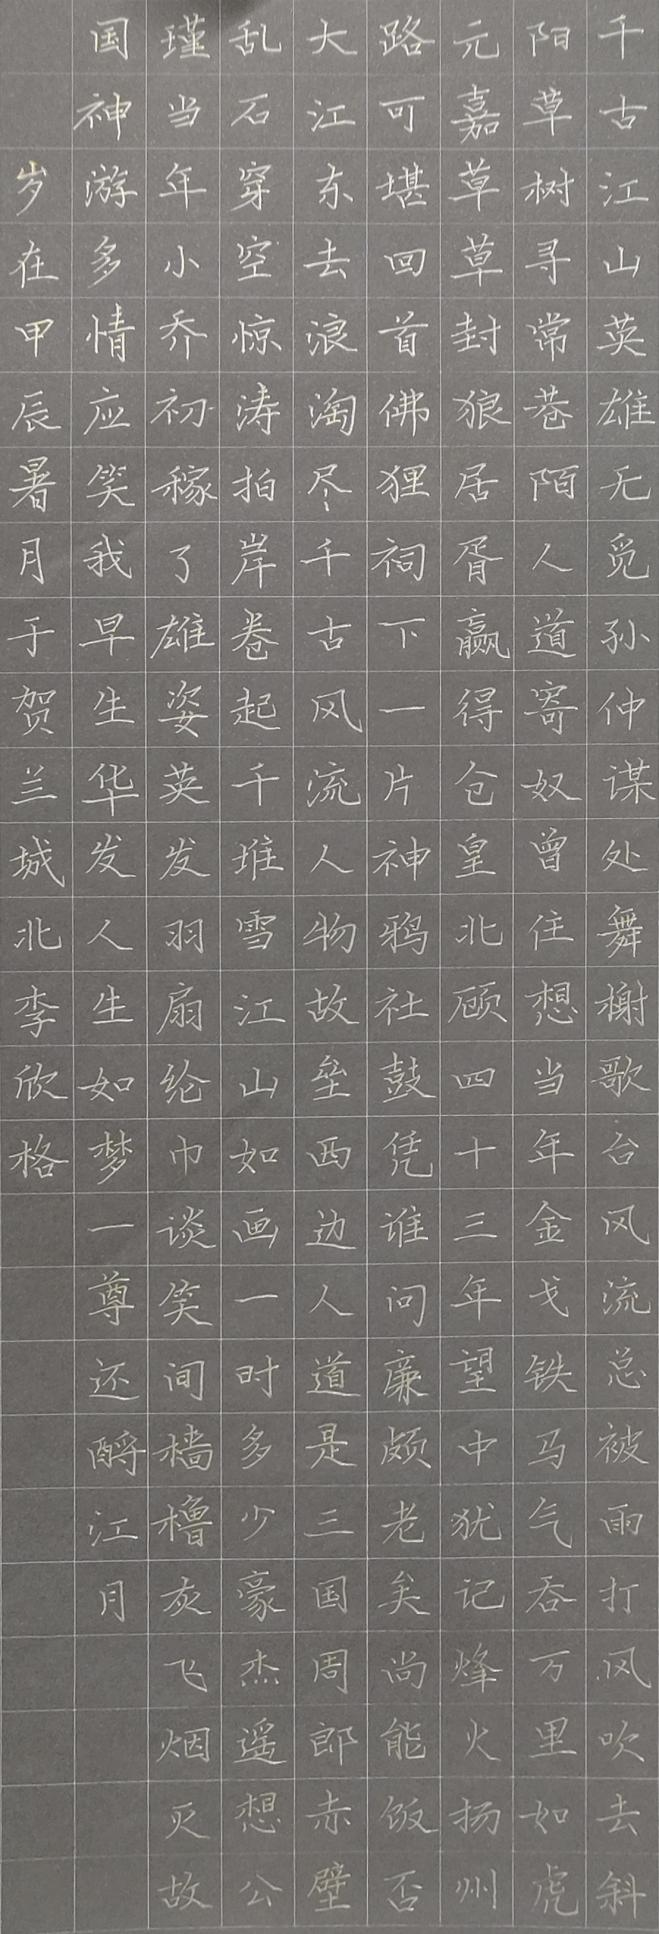 千古江山英雄无觅孙仲谋处舞榭歌台风流总被雨打风吹去斜
阳草树寻常巷陌人道寄奴曾住想当年金戈铁马气吞万里如虎
元嘉草草封狼居胥赢得仓皇北顾四十三年望中犹记烽火扬州
路可堪回首佛狸祠下一片神鸦社鼓凭谁问廉颇老矣尚能饭否
大江东去浪淘尽千古风流人物故垒西边人道是三国周郎赤壁
乱石穿空惊涛拍岸卷起千堆雪江山如画一时多少豪杰遥想公
瑾当年小乔初稼了雄姿英发羽扇纶巾谈笑间樯橹灰飞烟灭故
国神游多情应笑我早生华发人生如梦一尊还酹江月
岁在甲辰暑月于贺兰城北李欣格